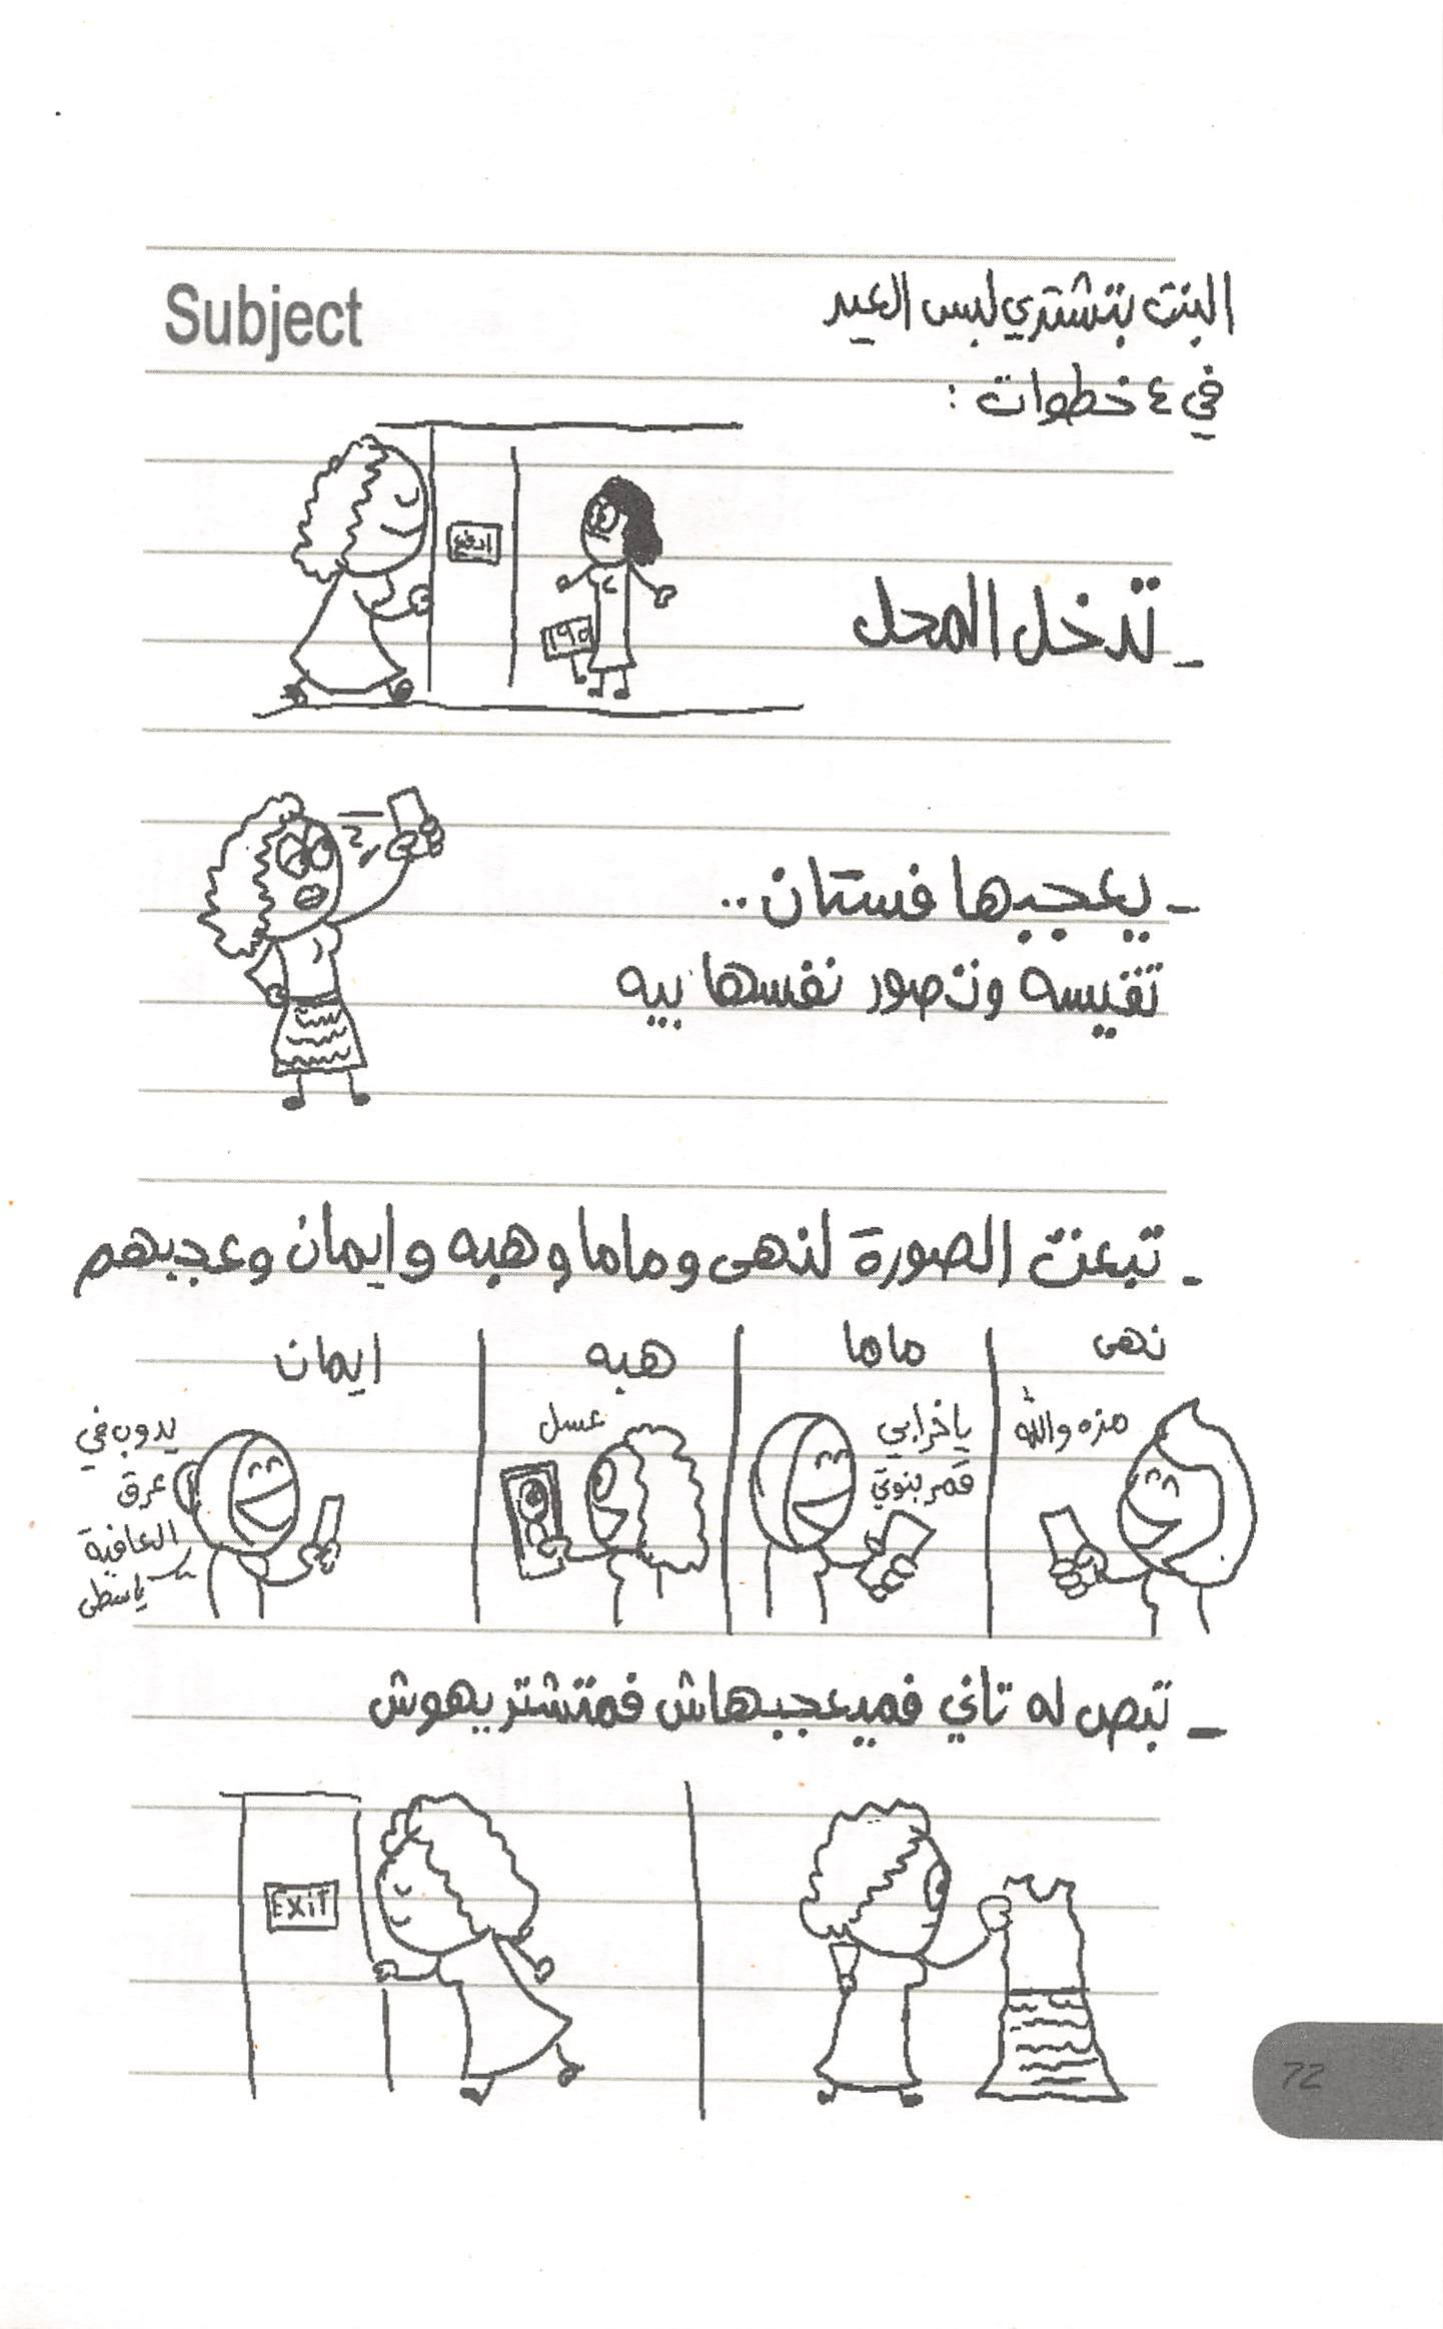 Subject
البنت بتشتري لبس العيد
في ٤ خطوات :
ادفع
١٩٥
- تدخل المحل
- يعجبها فستان..
تقيسه وتصور نفسها بيه
- تبعت الصورة لنهى وماما وهبه وايمان وعجبهم
نهى
مزه والله
ماما
ياخرابي
قمر بنوتي
هبه
عسل
ايمان
يدوب في
عرق
العافية
ياسطى
- تبص له تاني فميعجبهاش فمتشتريهوش
EXIT
72